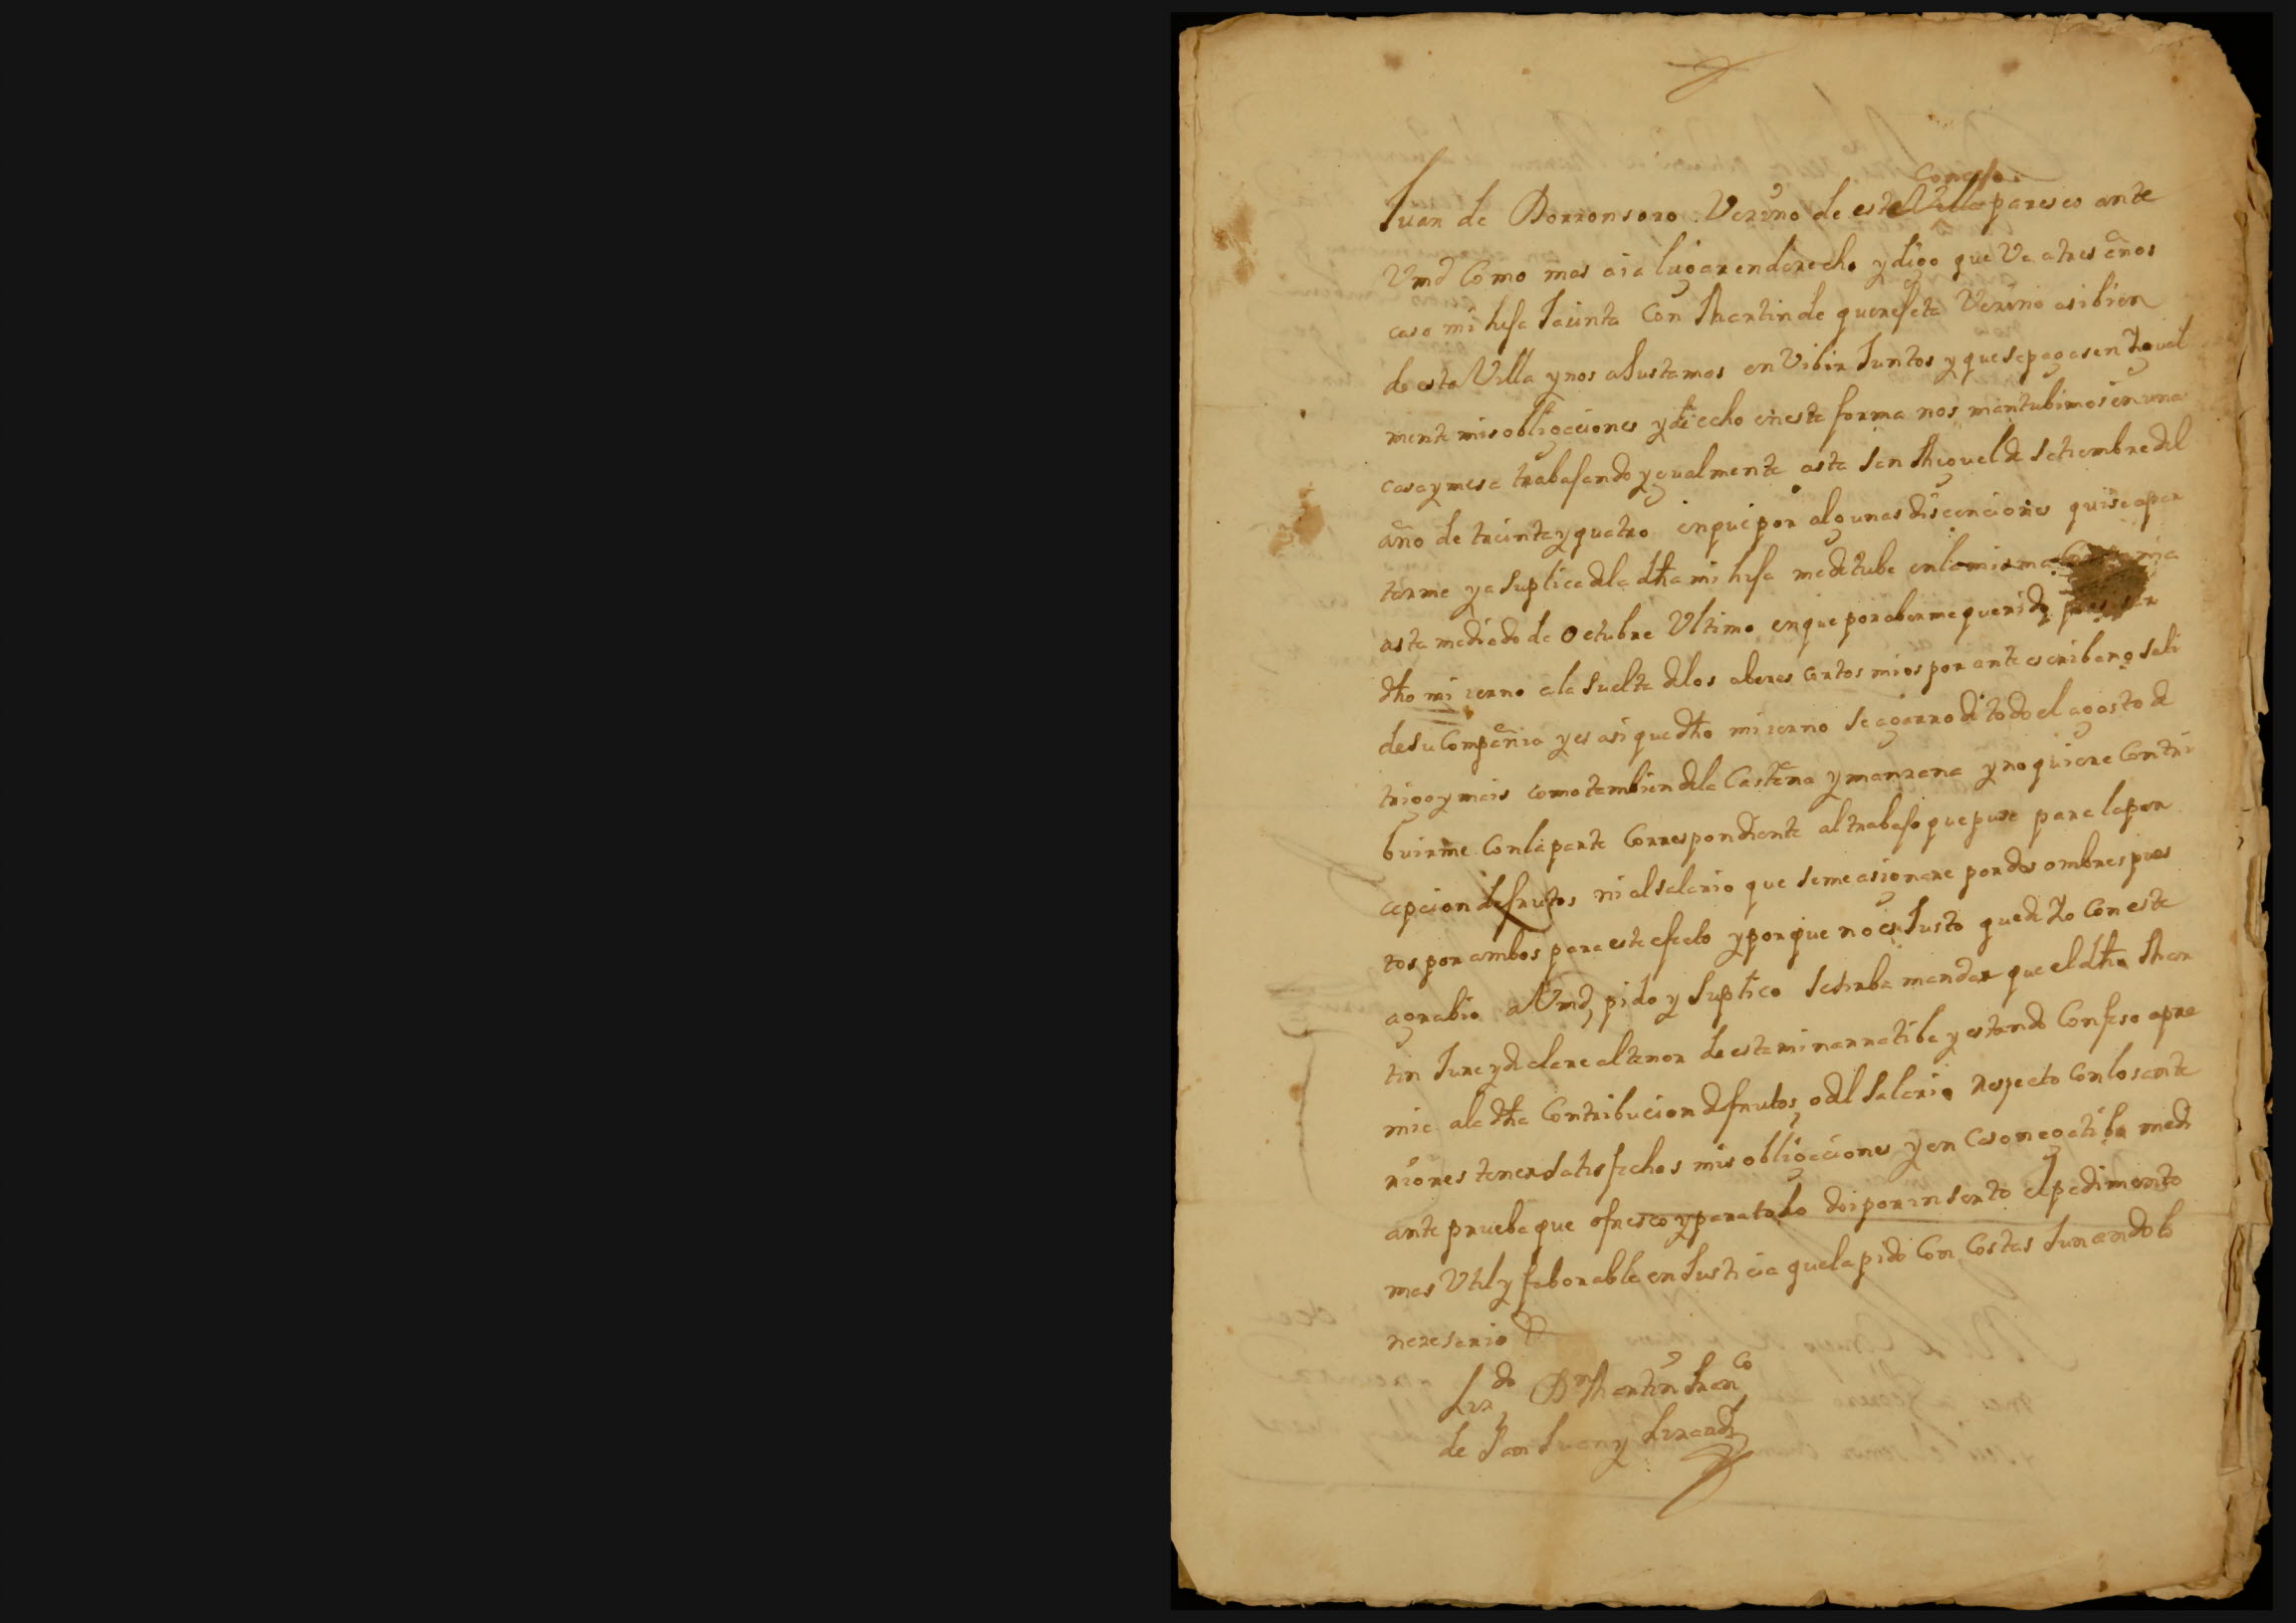 Concejo
Juan de Borronsoro Vezino de este Villa paresco ante
Vmd Como mas aia lugar en derecho y digo que Va a tres años
caso mi hija Jacinta Con Martin de querejeta Vezino asibien
de esta Villa y nos aJustamos en Vibir Juntos y que se pagasen Igual
mente mis obligaciones y de echo en esta forma nos mantubimos en una
casa y mesa trabajando ygualmente asta San Miguel de Setiembre del
año de treinta y quatro en que por algunas disenciones quise apar
tarme y a Suplica de la dha mi hija me detube en la misma
asta mediado de Octubre Ultimo en que por aberme querido
dho mi ierno a la Suelta de los aberes Cortos mios por ante escribano Sali
de Su Compañia y es asi que dho mi ierno Se agarro de todo el agosto de
trigo y mais como tambien de la Castaña y manzana y no quiere Contri
buirme Con la parte Correspondiente al trabajo que puse para la per
cepcion de frutos ni al salario que se me asignare por dos ombres pues
tos por ambos para este efecto y porque no es Justo quede Yo Con este
agrabio a Vmd pido y Suplico Se sirba mandar que el dho Mar
tin Jure y declare al tenor de esta mi narratiba y estando Confeso apre
mie a la dha Contribucion de frutos o del Salario respecto Con los ante
riores tener Satisfechos mis obligaciones y en Caso negatiba medi
ante prueba que ofresco y para todo doi por inserto el pedimento
mas Util y faborable en Justicia que la pido Con Costas Jurando lo
nezesario &
Lizdo Dn Martin Franco
de San Juan y